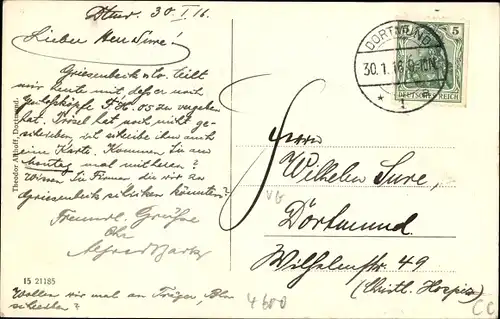 Dtmd. 30.I.16
Lieber Herr Sure!
Griesenbeck & Co. teilt
mir heute mit daß er noch
zu vergeben
hat. hat noch nicht ge-
schrieben ich schreibe ihm auch
eine Karte. Kommen Sie am
Montag mal mit heran?
Wissen Sie Firmen die wir an
Griesenbeck schicken könnten?
Freundl. Grüße
Ihr
Alfred
Wollen wir mal an
schreiben?
Theodor Althoff, Dortmund.
15 21185
DORTMUND
30.1.16 8-9N
* 1 a
5
DEUTSCHES REICH
Herrn
Wilhelm Sure,
Dortmund
Wilhelmstr 49
(Christl. Hospiz)
VG
4600
CC